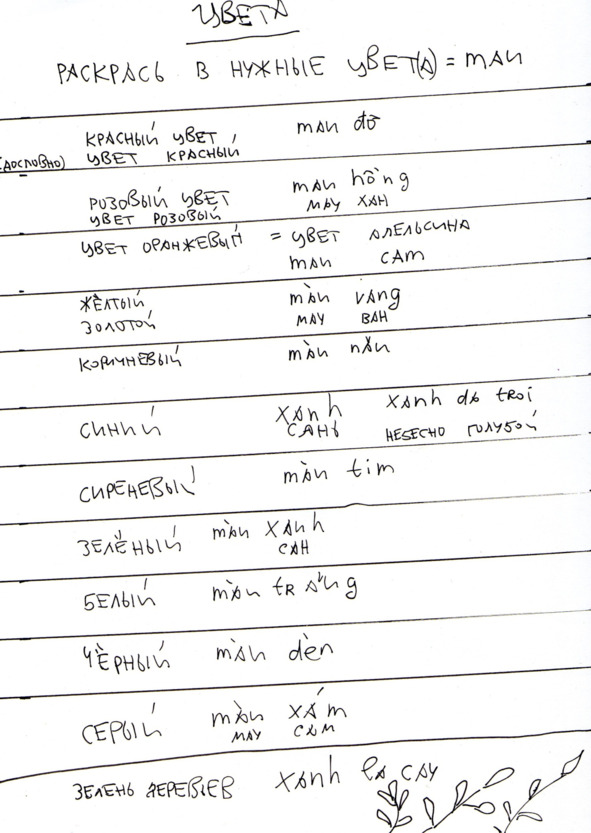 ЦВЕТА
РАСКРАСЬ В НУЖНЫЕ ЦВЕТ(А) = màu
КРАСНЫЙ ЦВЕТ, màu đỏ
(ДОСЛОВНО) ЦВЕТ КРАСНЫЙ
РОЗОВЫЙ ЦВЕТ màu hồng
ЦВЕТ РОЗОВЫЙ МАУ ХАН
ЦВЕТ ОРАНЖЕВЫЙ = ЦВЕТ АПЕЛЬСИНА
màu CAM
ЖЁЛТЫЙ màu vàng
ЗОЛОТОЙ МАУ ВАН
КОРИЧНЕВЫЙ màu nâu
СИНИЙ XANh XANh da troi
САНЬ НЕБЕСНО ГОЛУБОЙ
СИРЕНЕВЫЙ màu tim
ЗЕЛЁНЫЙ màu XANh
САН
БЕЛЫЙ màu trắng
ЧЁРНЫЙ màu dèn
СЕРЫЙ màu XÁm
МАУ САМ
ЗЕЛЕНЬ ДЕРЕВЬЕВ XANh la CAY